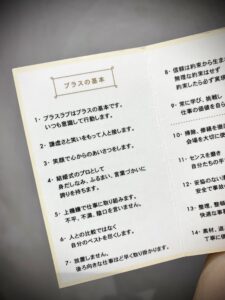 プラスの基本
1- プラスラブはプラスの基本です。
いつも意識して行動します。
2- 謙虚さと笑いをもって人と接します。
3- 笑顔で心からのあいさつをします。
4- 結婚式のプロとして
身だしなみ、ふるまい、言葉づかいに
誇りを持ちます。
5- 上機嫌で仕事に取り組みます。
不平、不満、陰口を言いません。
6- 人との比較ではなく
自分のベストを尽くします。
7- 放置しません。
後ろ向きな仕事ほど早く取り掛かります。
8- 信頼は約束から生ま
無理な約束はせず
約束したら必ず実
9- 常に学び、挑戦し
仕事の価値を自ら
10- 掃除、修繕を
会場を大切に
11- センスを磨き
自分たちの
12- 妥協のない
安全で
13- 整理、整
快適な
14- 素材、
丁寧に